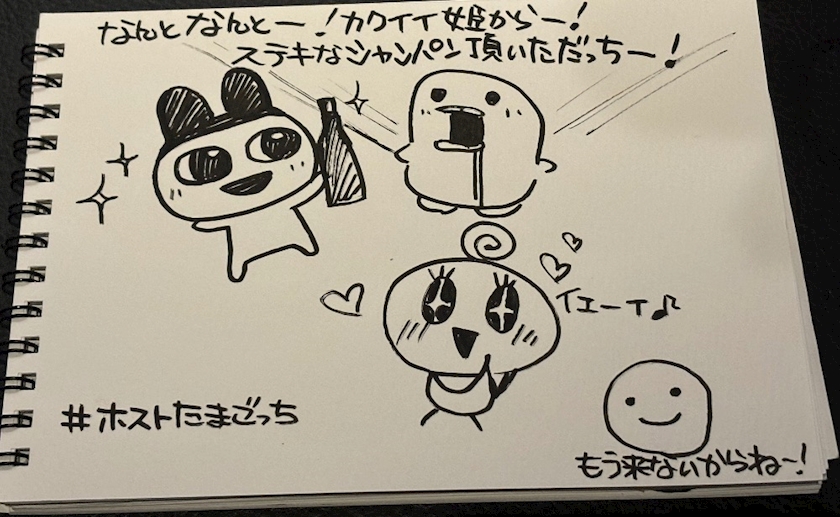 なんとなんとー!カワイイ姫からー!
ステキなシャンパン頂いただっちー!
イエーイ♪
#ホストたまごっち
もう来ないからね〜!